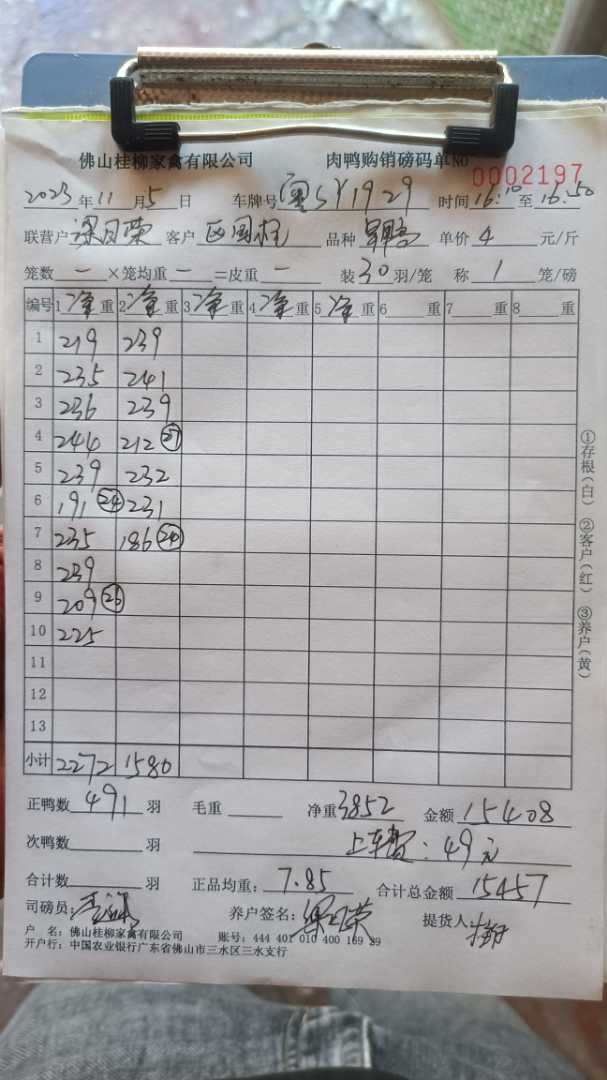 佛山桂柳家禽有限公司 肉鸭购销磅码单 NO 0002197
2023年11月5日 车牌号 粤SY1929 时间16:10至16:50
联营户 梁月荣 客户 区国柱 品种 单价 4 元/斤
笼数 一 ×笼均重 一 =皮重 一 装30羽/笼 称 1 笼/磅
编号 1净重 2净重 3净重 4净重 5净重 6 重 7 重 8 重
1 219 239
2 235 241
3 236 239
4 244 212 (27)
5 239 232
6 191 (24) 231
7 235 186 (24)
8 239
9 209 (26)
10 225
11
12
13
小计 2272 1580
①存根(白) ②客户(红) ③养户(黄)
正鸭数 491 羽 毛重 净重 3852 金额 15408
次鸭数 羽 上车费:49元
合计数 羽 正品均重: 7.85 合计总金额 15457
司磅员: 养户签名: 梁月荣 提货人
户 名: 佛山桂柳家禽有限公司 账号: 444 401 010 400 169 29
开户行: 中国农业银行广东省佛山市三水区三水支行